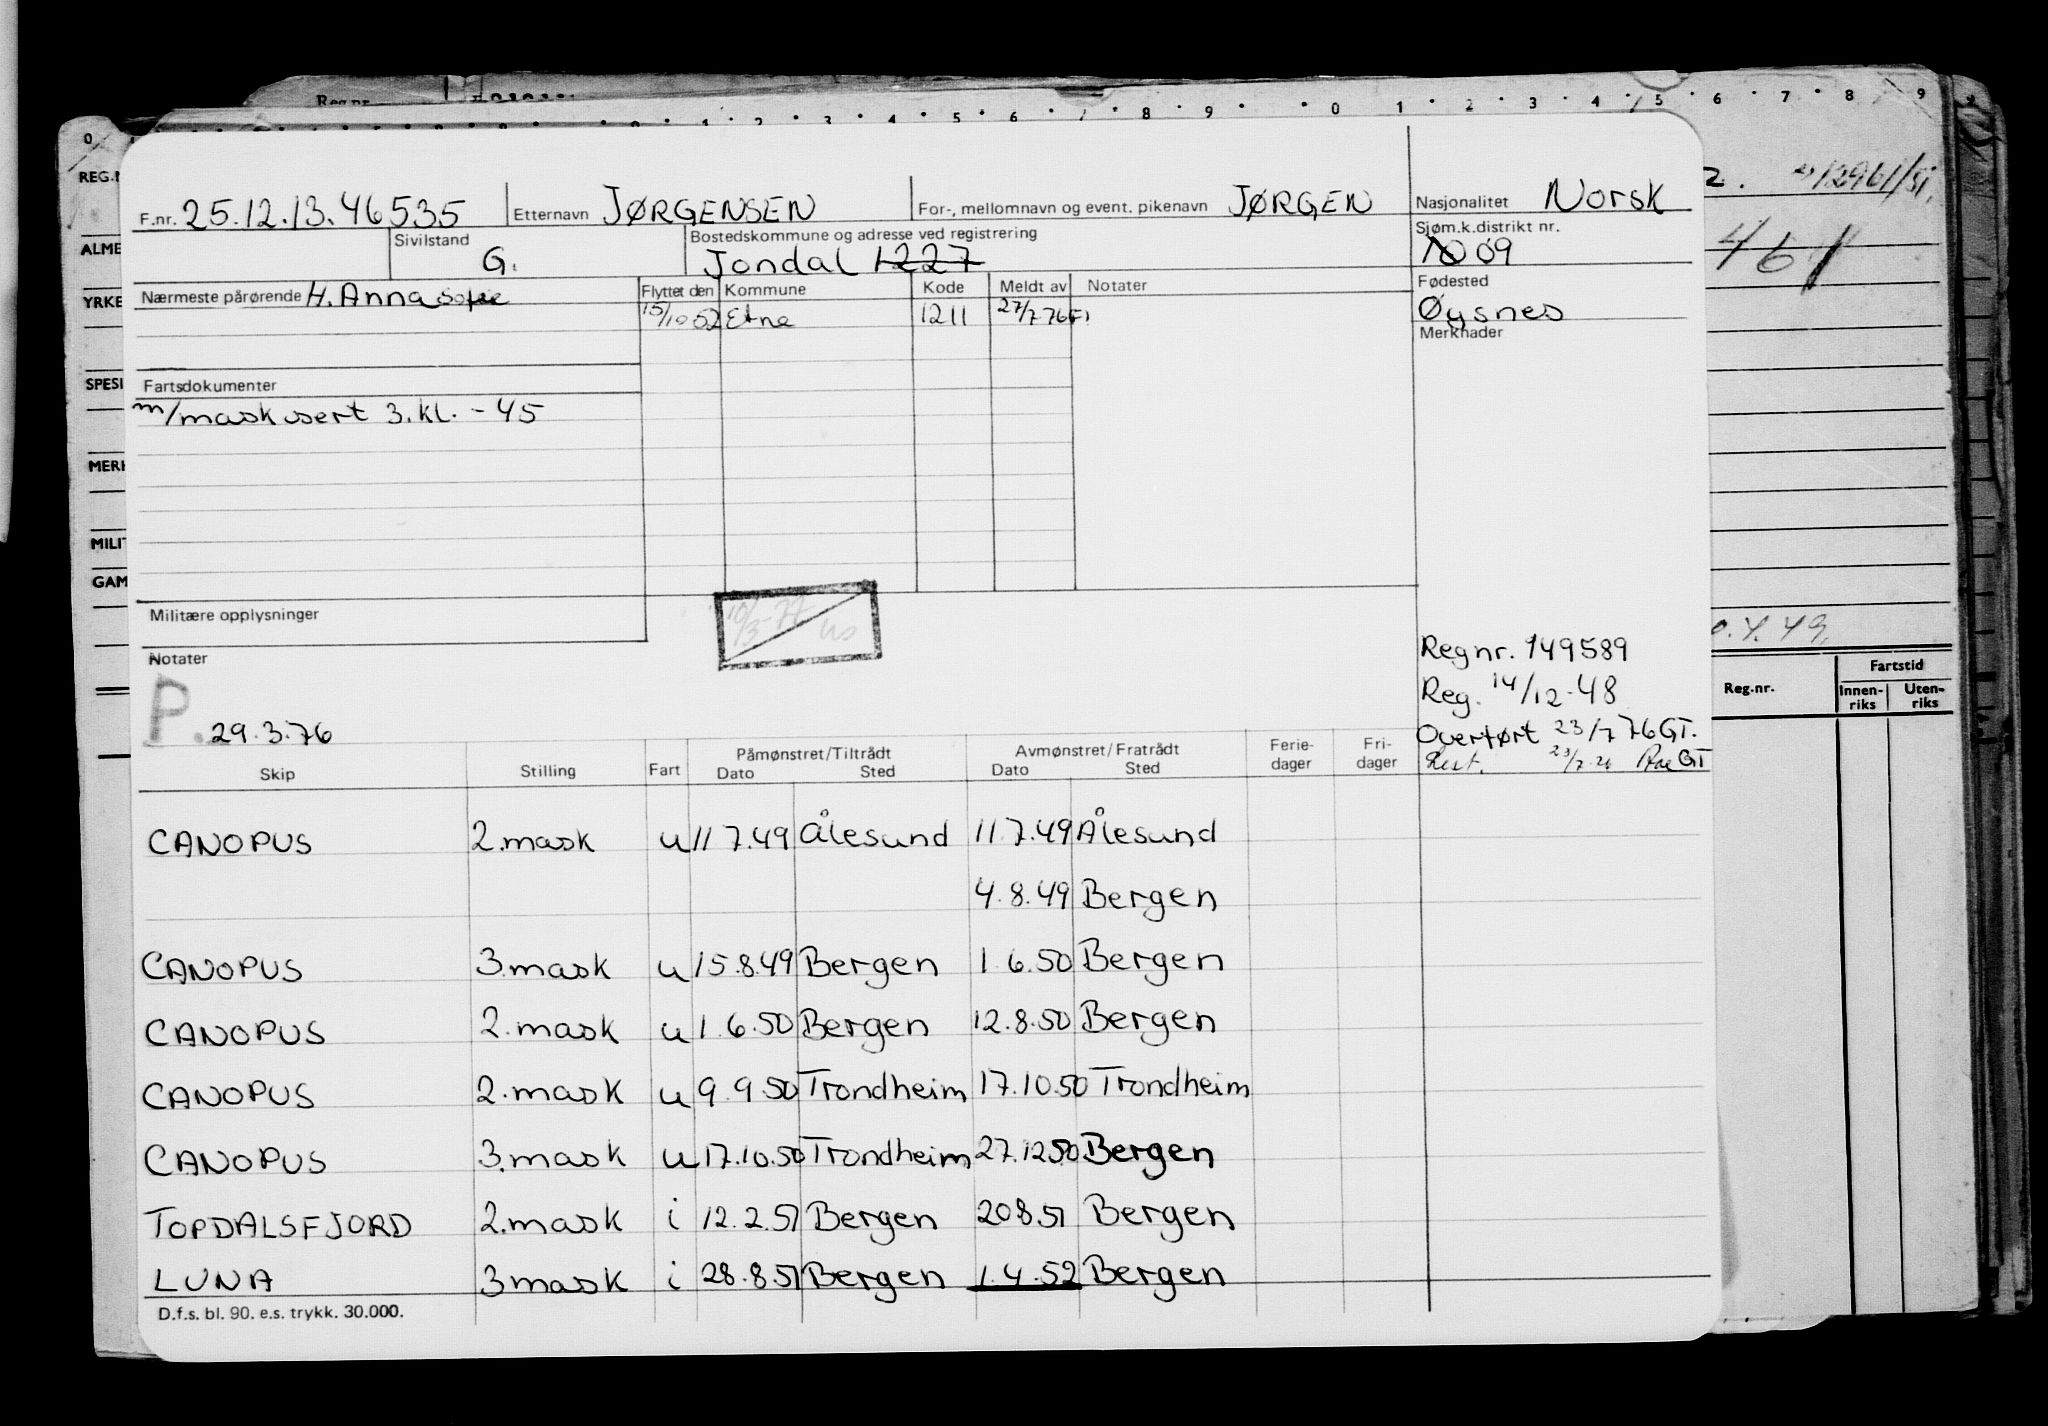 Reg.nr.
0 1 2 3 4 5 6 7 8 9 0 1 2 3 4 5 6 7 8 9
REG.N
2. 12961/51.
F.nr. 25.12.13.46535 Etternavn JØRGENSEN For-, mellomnavn og event. pikenavn JØRGEN Nasjonalitet Norsk
ALME Sivilstand G. Bostedskommune og adresse ved registrering Jondal 1227 Sjøm.k.distrikt nr. 09
461
YRKE Nærmeste pårørende H. Anna Sofie Flyttet den Kommune Kode Meldt av Notater Fødested
15/10 52 Etne 1211 27/7 76 Øysnes
Merknader
SPESI Fartsdokumenter
m/mask sert 3. kl. - 45
MERK
MILIT
GAM
Militære opplysninger
10/3-77
0.4.49.
Notater
Regnr. 149589
P. 29.3.76
Reg. 14/12-48
Overført 23/7 76 GT.
23/7-76 GT
Reg.nr. Fartstid
Innen-riks Uten-riks
Skip Stilling Fart Påmønstret/Tiltrådt Avmønstret/Fratrådt Ferie-dager Fri-dager
Dato Sted Dato Sted
CANOPUS 2.mask u 11 7.49 Ålesund 11.7.49 Ålesund
4.8.49 Bergen
CANOPUS 3.mask u 15.8.49 Bergen 1.6.50 Bergen
CANOPUS 2.mask u 1.6.50 Bergen 12.8.50 Bergen
CANOPUS 2.mask u 9.9.50 Trondheim 17.10.50 Trondheim
CANOPUS 3.mask u 17.10.50 Trondheim 27.12.50 Bergen
TOPDALSFJORD 2.mask i 12.2.51 Bergen 20.8.51 Bergen
LUNA 3 mask i 28.8.51 Bergen 1.4.52 Bergen
D.f.s. bl. 90. e.s. trykk. 30.000.